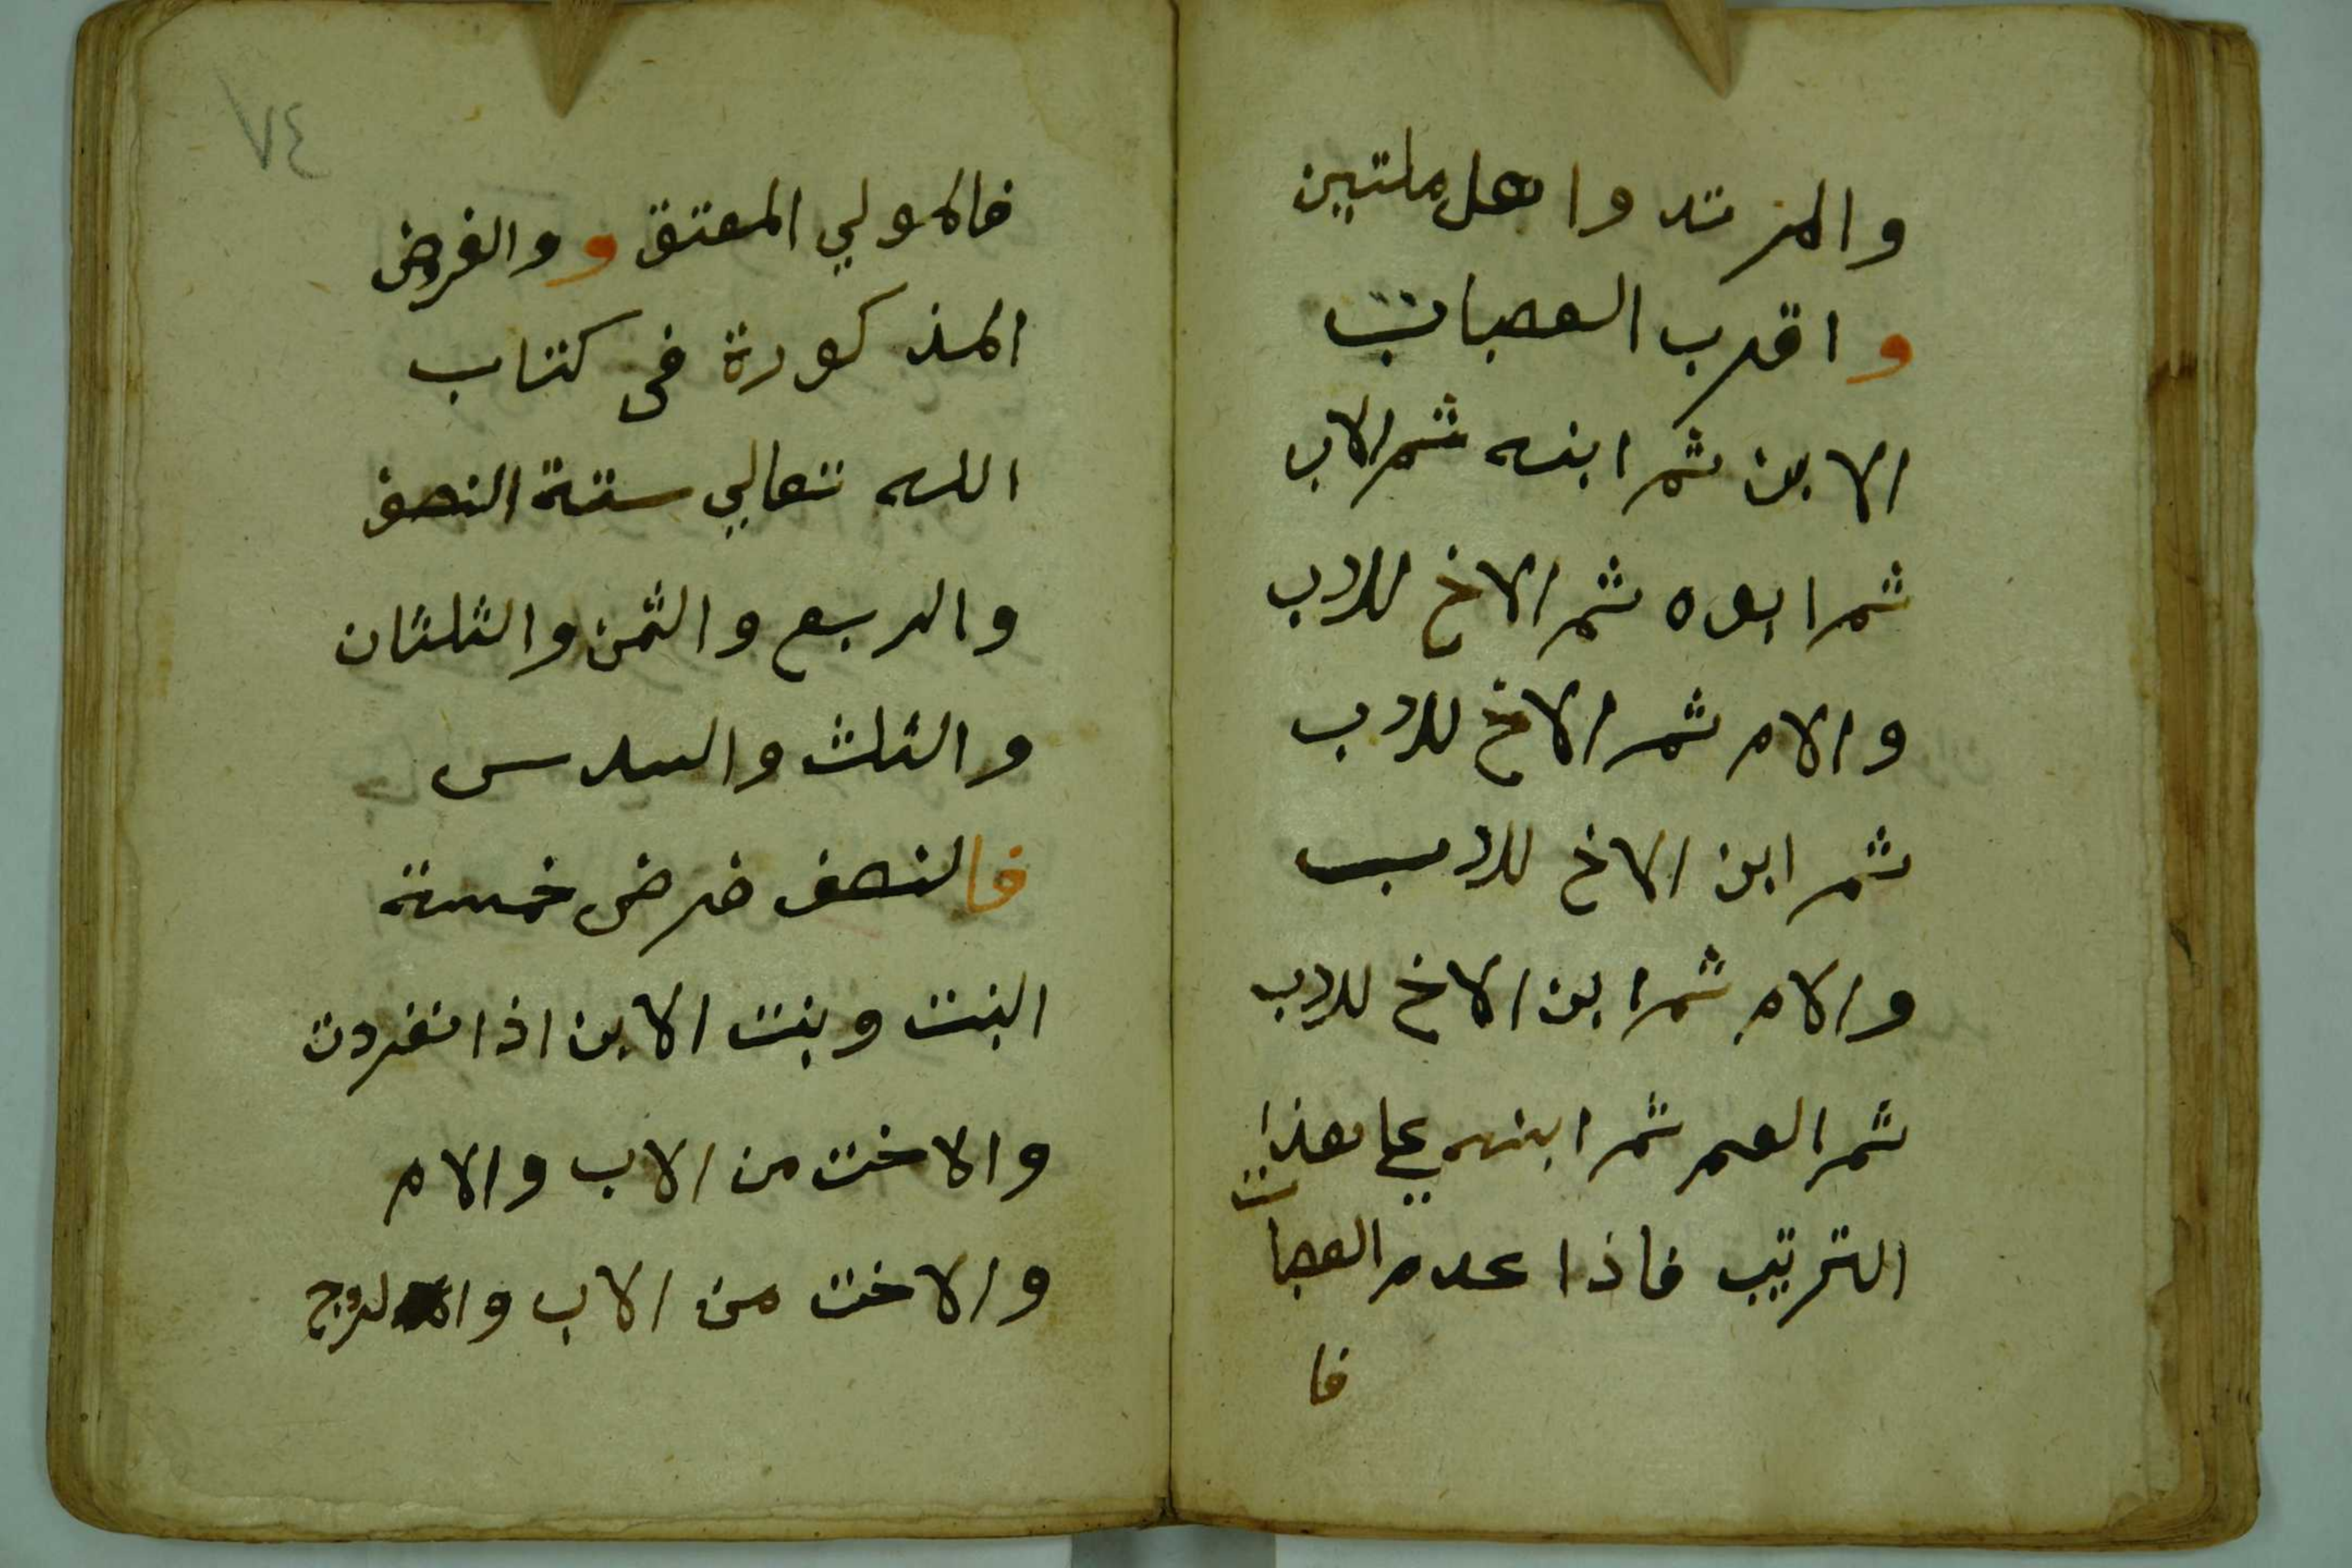 والمرتد واهل ملتين
و اقرب العصبات
الابن ثم ابنه ثم الاب
ثم ابوه ثم الاخ للاب
والام ثم الاخ للاب
ثم ابن الاخ للاب
والام ثم ابن الاخ للاب
ثم العم ثم ابنه علي هذا
الترتيب فاذا عدم العصبات
فا
٧٤
فالمولي المعتق و والفروض
المذكورة في كتاب
الله تعالي ستة النصف
والربع والثمن والثلثان
والثلث والسدس
فالنصف فرض خمسة
البنت وبنت الابن اذا انفردت
والاخت من الاب والام
والاخت من الاب والزوج